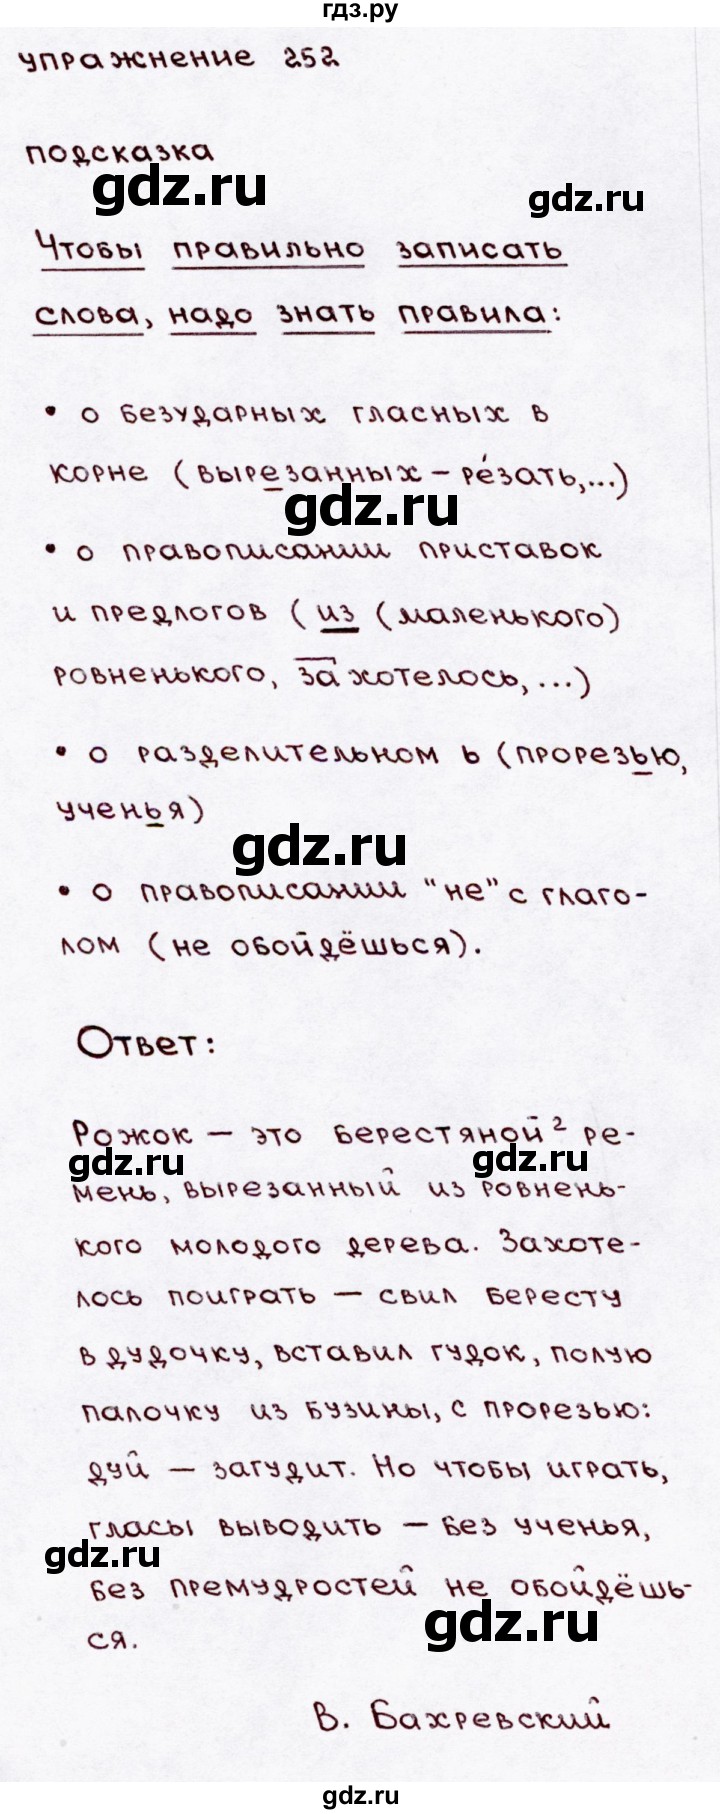 гдз.ру
упражнение 252
подсказка
gdz.ru
gdz.ru
Чтобы правильно записать
слова, надо знать правила:
• о безударных гласных в
корне (вырезанных – ре́зать,...)
gdz.ru
• о правописании приставок
и предлогов (из (маленького)
ровненького, захотелось, ...)
• о разделительном ь (прорезью,
ученья)
gdz.ru
• о правописании "не" с глаго-
лом (не обойдёшься).
Ответ:
Рожок – это берестяной² ре-
gdz.ru
gdz.ru
мень, вырезанный из ровнень-
кого молодого дерева. Захоте-
лось поиграть – свил бересту
в дудочку, вставил гудок, полую
палочку из бузины, с прорезью:
дуй – загудит. Но чтобы играть,
гласы выводить – без ученья,
gdz.ru
без премудростей не обойдёшь-
gdz.ru
ся.
В. Бахревский
gdz.ru